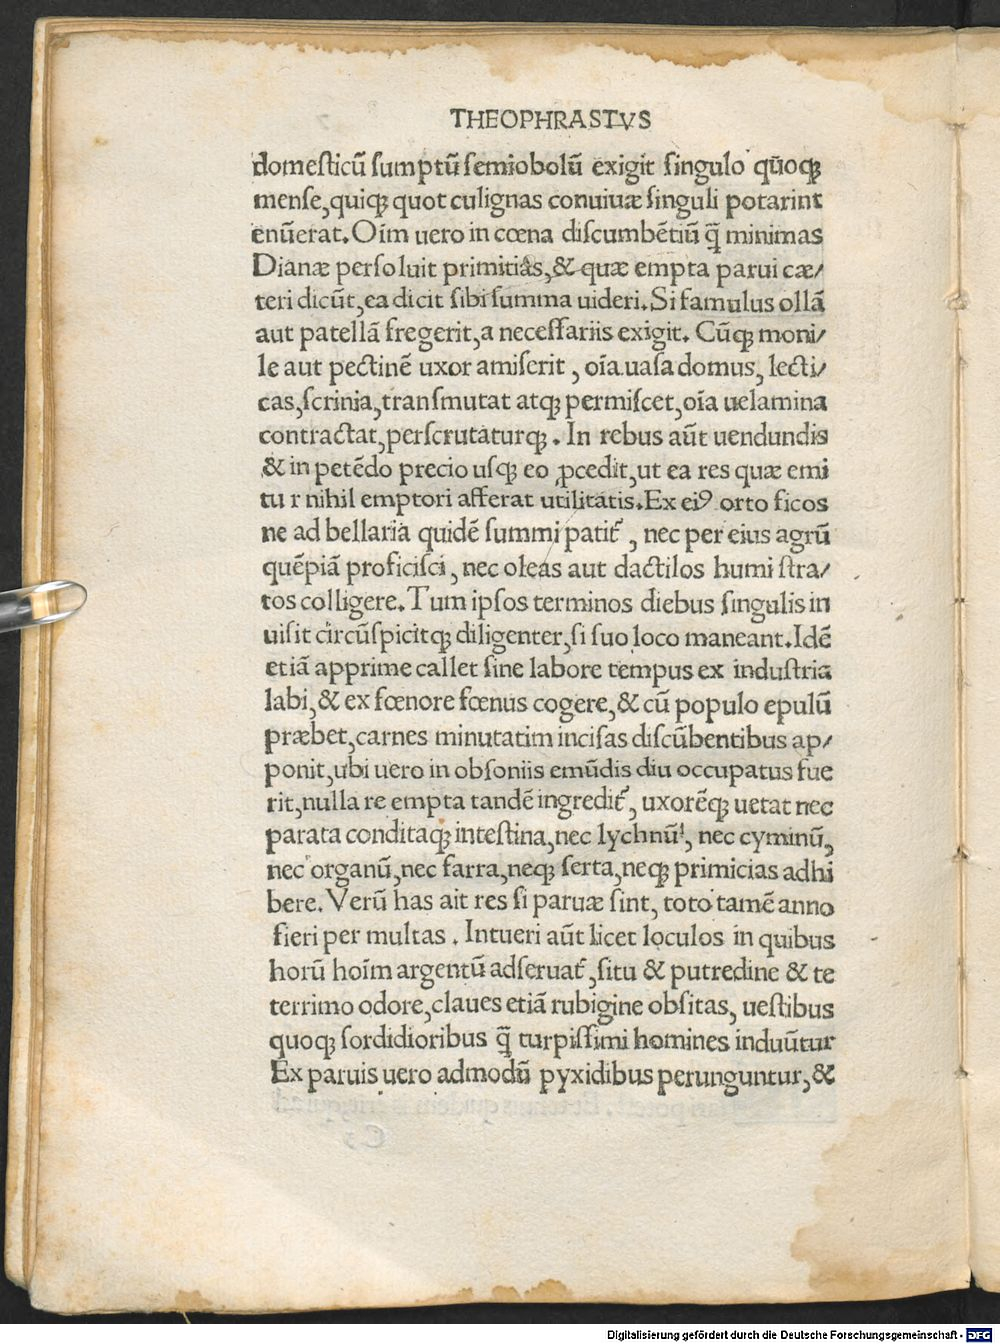 THEOPHRASTVS
domesticũ sumptũ semiobolũ exigit singulo qũoqꝫ
mense, quiqꝫ quot culignas conuiuæ singuli potarint
enũerat. Oĩm uero in cœna discumbẽtiũ q̃ minimas
Dianæ persoluit primitias, & quæ empta parui cæ/
teri dicũt, ea dicit sibi summa uideri. Si famulus ollã
aut patellã fregerit, a necessariis exigit. Cũqꝫ moni/
le aut pectinẽ uxor amiserit, oĩa uasa domus, lecti/
cas, scrinia, transmutat atqꝫ permiscet, oĩa uelamina
contractat, perscrutaturqꝫ. In rebus aũt uendundis
& in petẽdo precio usqꝫ eo ꝓcedit, ut ea res quæ emi
tu r nihil emptori afferat utilitatis. Ex eiꝰ orto ficos
ne ad bellaria quidẽ summi patit᷑, nec per eius agrũ
quẽpiã proficisci, nec oleas aut dactilos humi stra/
tos colligere. Tum ipsos terminos diebus singulis in
uisit circũspicitqꝫ diligenter, si suo loco maneant. Idẽ
etiã apprime callet sine labore tempus ex industria
labi, & ex fœnore fœnus cogere, & cũ populo epulũ
præbet, carnes minutatim incisas discũbentibus ap/
ponit, ubi uero in obsoniis emũdis diu occupatus fue
rit, nulla re empta tandẽ ingredit᷑, uxorẽqꝫ uetat nec
parata conditaqꝫ intestina, nec lychnũ, nec cyminũ,
nec organũ, nec farra, neqꝫ serta, neqꝫ primicias adhi
bere. Verũ has ait res si paruæ sint, toto tamẽ anno
fieri per multas. Intueri aũt licet loculos in quibus
horũ hoĩm argentũ adseruat᷑, situ & putredine & te
terrimo odore, claues etiã rubigine obsitas, uestibus
quoqꝫ sordidioribus q̃ turpissimi homines induũtur
Ex paruis uero admodũ pyxidibus perunguntur, &
Digitalisierung gefördert durch die Deutsche Forschungsgemeinschaft - DFG